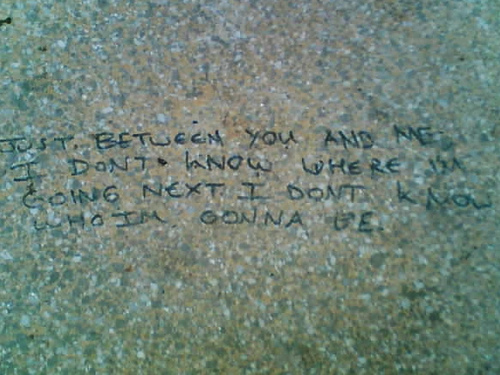 JUST. BETWEEN YOU AND ME.
I DONT KNOW WHERE IM
GOING NEXT I DONT KNOW
WHO IM GONNA BE.